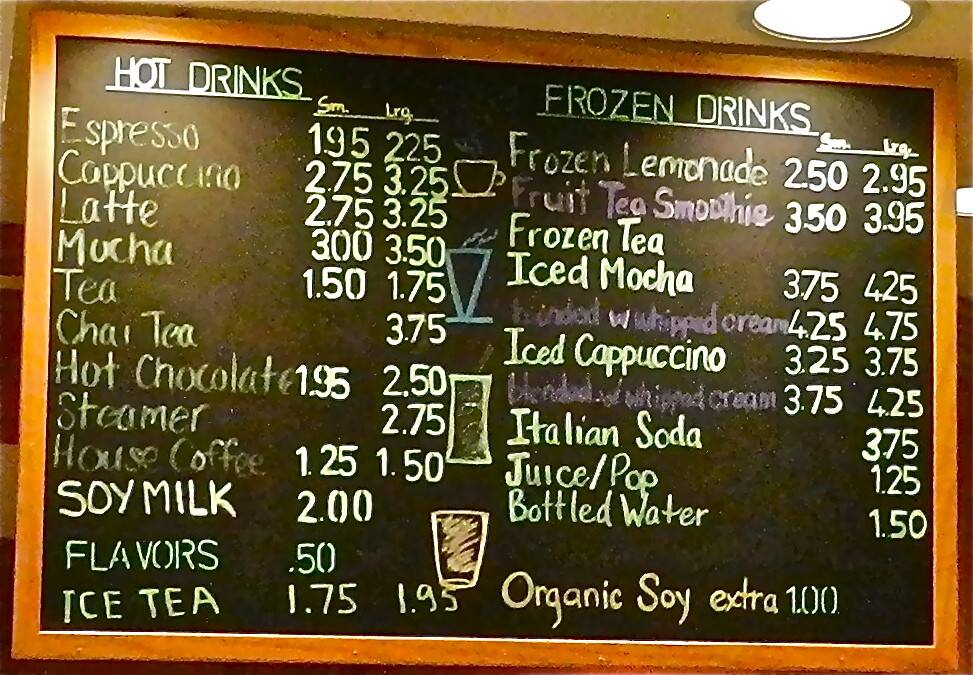 HOT DRINKS
Sm. Lrg.
Espresso 1.95 2.25
Cappuccino 2.75 3.25
Latte 2.75 3.25
Mocha 3.00 3.50
Tea 1.50 1.75
Chai Tea 3.75
Hot Chocolate 1.95 2.50
Steamer 2.75
House Coffee 1.25 1.50
SOY MILK 2.00
FLAVORS .50
ICE TEA 1.75 1.95
FROZEN DRINKS
Sm. Lrg.
Frozen Lemonade 2.50 2.95
Fruit Tea Smoothie 3.50 3.95
Frozen Tea
Iced Mocha 3.75 4.25
blended w/whipped cream 4.25 4.75
Iced Cappuccino 3.25 3.75
blended w/whipped cream 3.75 4.25
Italian Soda 3.75
Juice/Pop 1.25
Bottled Water 1.50
Organic Soy extra 1.00